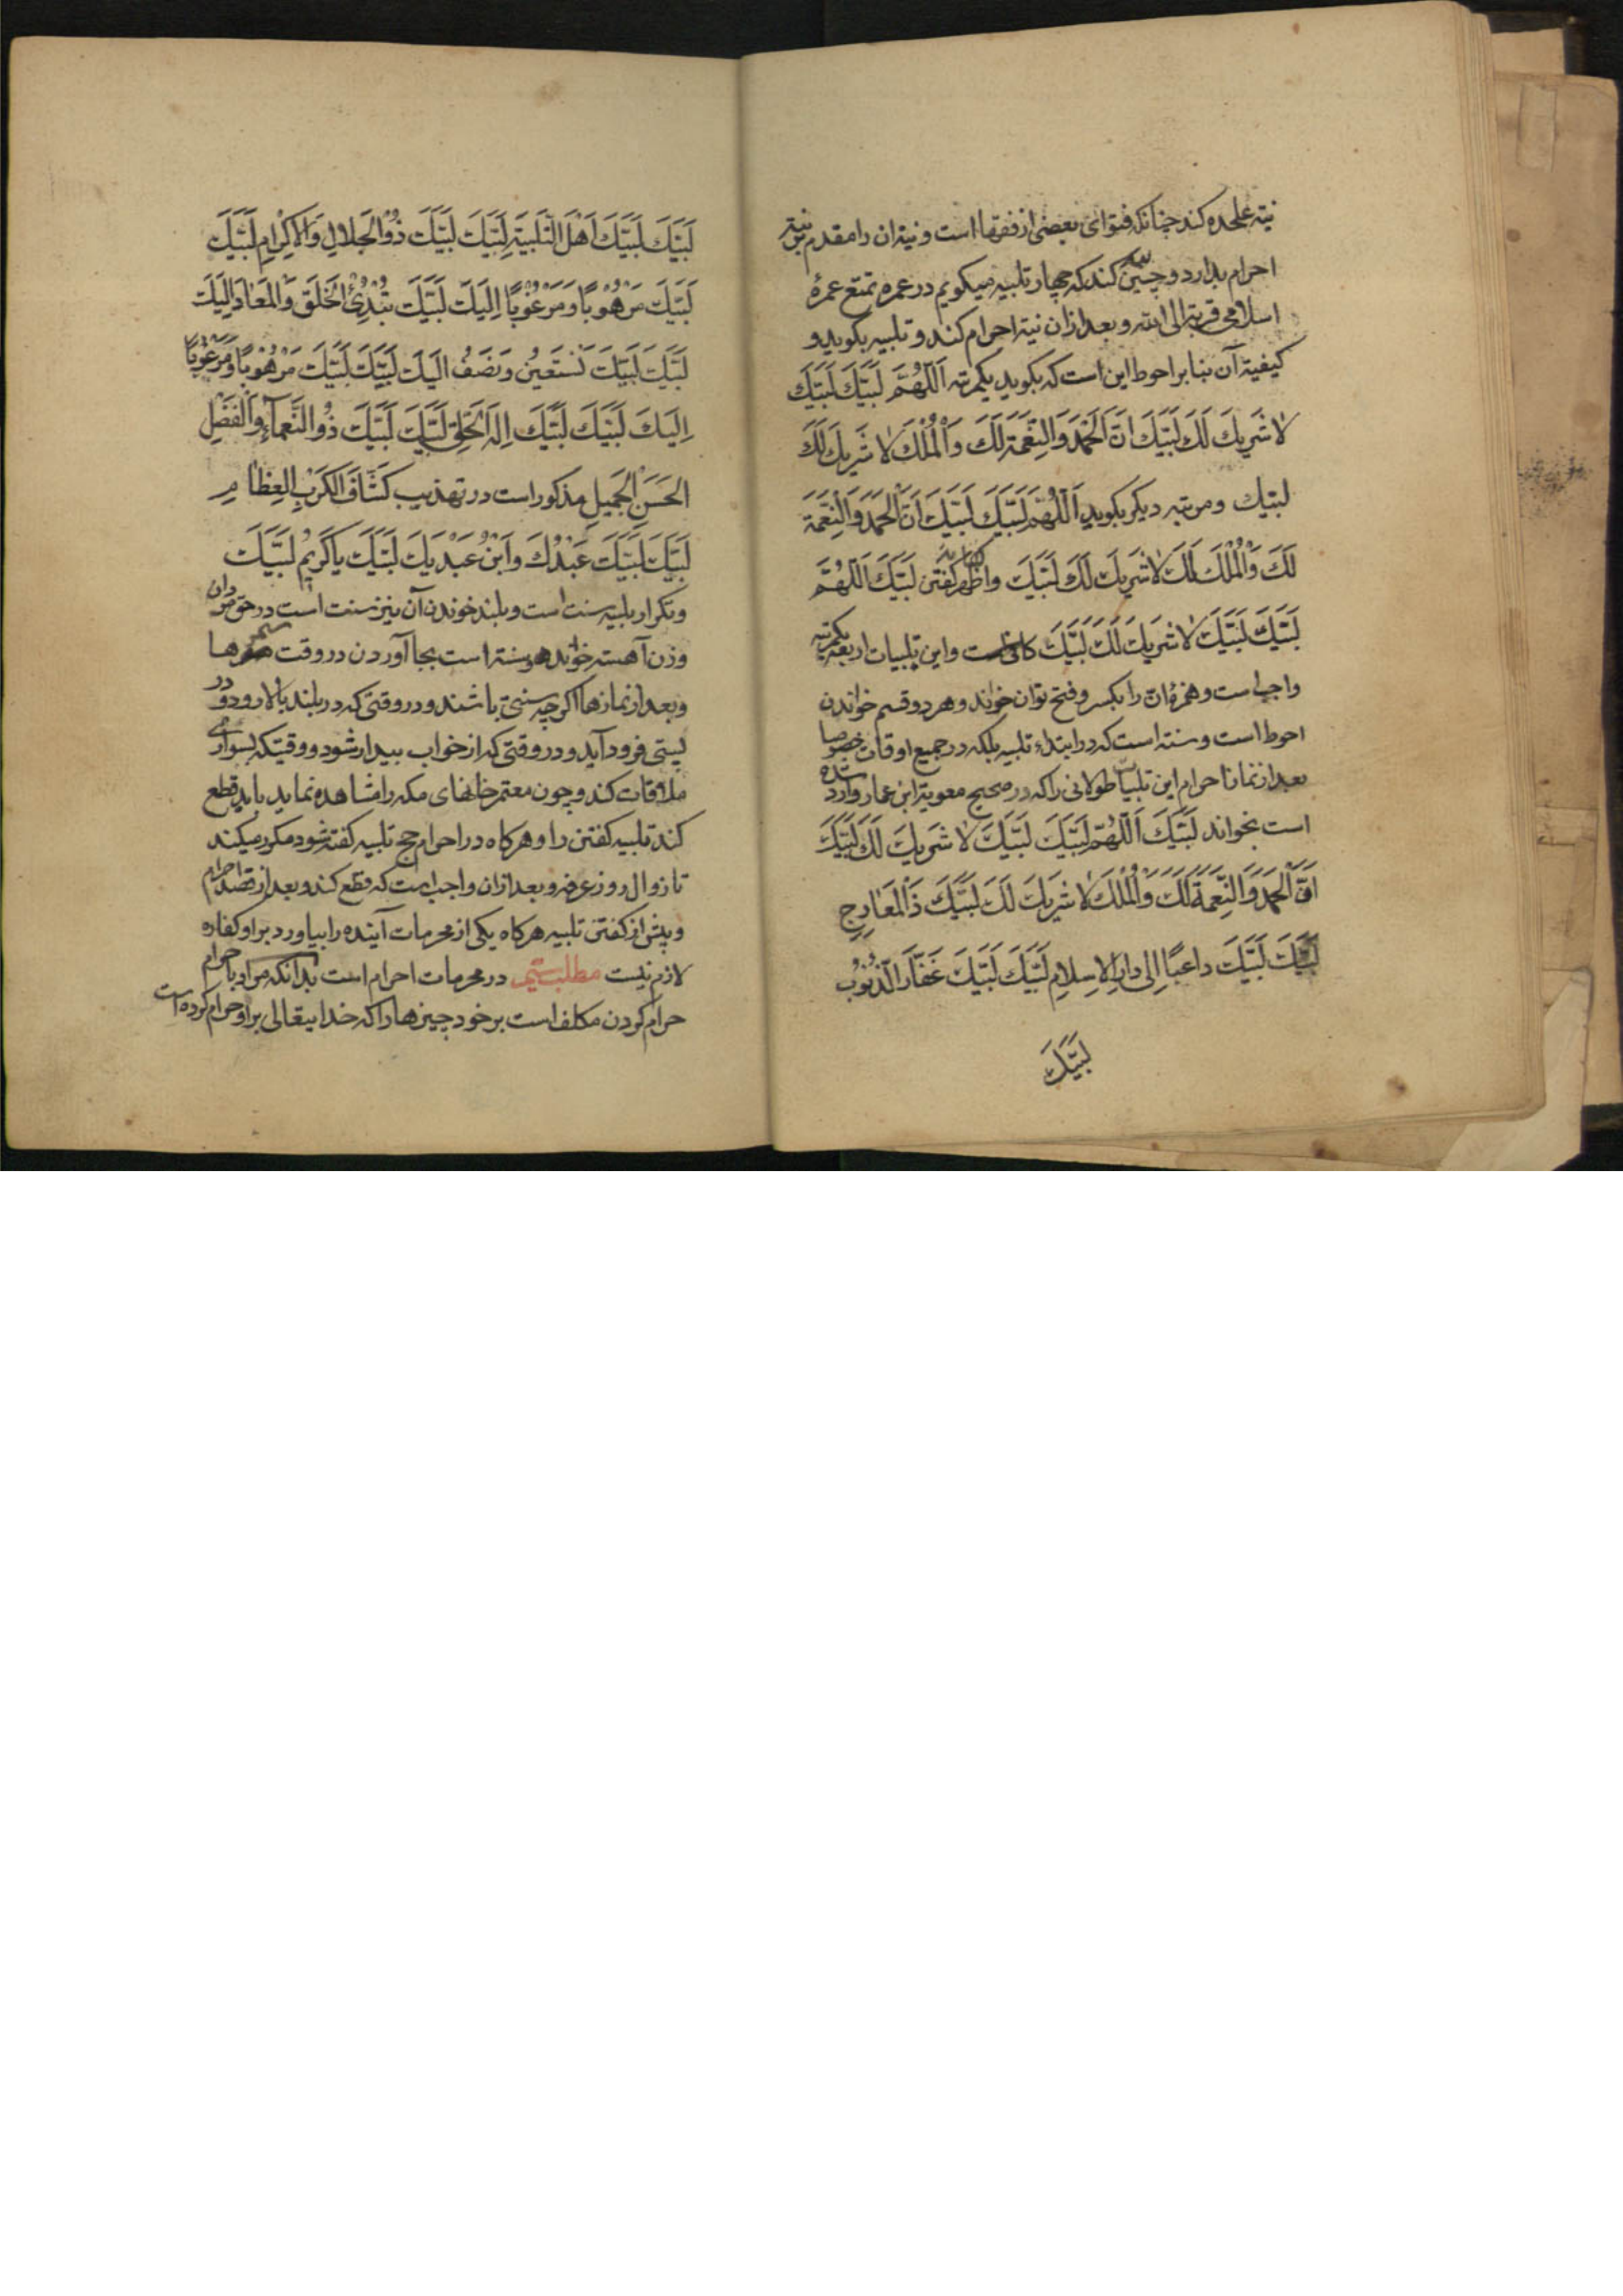 نیة علحده کند چنانکه فتوای بعضی از فقها است و نیة ان را مقدم بر نیة
احرام بدارد و چنین کند که چهار تلبیه میکویم در عمره تمتع عمرهٔ
اسلامی قربة الی الله و بعد از ان نیة احرام کند و تلبیه بکوید و
کیفیة آن بنا بر احوط این است که بکوید یکمرتبه اَللّهُمَّ لَبَّیْكَ لَبَّیْكَ
لا شَریكَ لَكَ لَبَّیْكَ اِنَّ الْحَمْدَ وَالنِّعْمَةَ لَكَ وَالْمُلْكَ لا شَریكَ لَكَ
لبیك و مرتبه دیکر بکوید اَللّهُمَّ لَبَّیْكَ لَبَّیْكَ اِنَّ الْحَمْدَ وَالنِّعْمَةَ
لَكَ وَالْمُلْكَ لَكَ لا شَریكَ لَكَ لَبَّیْكَ و اظهر کفتن لَبَّیْكَ اَللّهُمَّ
لَبَّیْكَ لَبَّیْكَ لا شَریكَ لَكَ لَبَّیْكَ کافی است و این تلبیات اربعه یکمرتبه
واجب است و همزهٔ ان را بکسر و فتح توان خواند و هر دو قسم خواندن
احوط است و سنته است که در ابتداء تلبیه بلکه در جمیع اوقات خصوصا
بعد از نماز احرام این تلبیات طولانی را که در صحیح معویة ابن عمار وارد شده
است بخواند لَبَّیْكَ اَللّهُمَّ لَبَّیْكَ لَبَّیْكَ لا شَریكَ لَكَ لَبَّیْكَ
اِنَّ الْحَمْدَ وَالنِّعْمَةَ لَكَ وَالْمُلْكَ لا شَریكَ لَكَ لَبَّیْكَ ذَالْمَعارِجِ
لَبَّیْكَ لَبَّیْكَ داعیًا اِلی دارِ الاِسلامِ لَبَّیْكَ لَبَّیْكَ غَفّارَ الذُّنُوبِ
لَبَّیْكَ
لَبَّیْكَ لَبَّیْكَ اَهْلَ التَّلْبِیَةِ لَبَّیْكَ لَبَّیْكَ ذُوالْجَلالِ وَالاِكْرامِ لَبَّیْكَ
لَبَّیْكَ مَرْهُوبًا وَمَرْغُوبًا اِلَیْكَ لَبَّیْكَ تُبْدِئُ الْخَلْقَ وَالْمَعادُ اِلَیْكَ
لَبَّیْكَ لَبَّیْكَ نَسْتَعینُ اِلَیْكَ لَبَّیْكَ لَبَّیْكَ مَرْهُوبًا وَمَرْغُوبًا
اِلَیْكَ لَبَّیْكَ لَبَّیْكَ اِلهَ الْخَلْقِ لَبَّیْكَ لَبَّیْكَ ذُو النَّعْماءِ وَالْفَضْلِ
الْحَسَنِ الْجَمیلِ مذکور است در تهذیب کَشّافَ الْکَرْبِ الْعِظامِ
لَبَّیْكَ لَبَّیْكَ عَبْدُكَ وَابْنُ عَبْدَیْكَ لَبَّیْكَ یا کَریمُ لَبَّیْكَ
و تکرار تلبیه سنت است و بلند خوندن آن نیز سنت است در حق مردان
و زن آهسته خواند و سنته است بجا آوردن در وقت سحرها
و بعد از نمازها اکر چه سنتی باشند و در وقتی که در بلند بالا رود و در
پستی فرود آید و در وقتی که از خواب بیدار شود و وقتیکه بسواری
ملاقات کند و چون معتمر خانهای مکه را مشاهده نماید باید قطع
کند تلبیه کفتن را و هرکاه در احرام حج تلبیه کفته شود مکرر میکند
تا زوال روز عرفه و بعد از ان واجب است که قطع کند و بعد از قصد احرام
و پیش از کفتن تلبیه هرکاه یکی از محرمات آینده را بیاورد بر او کفاره
لازم نیست مطلب ستیم در محرمات احرام است بدانکه مراد باحرام
حرام کردن مکلف است بر خود چیزها را که خدایتعالی بر او حرام کرده است